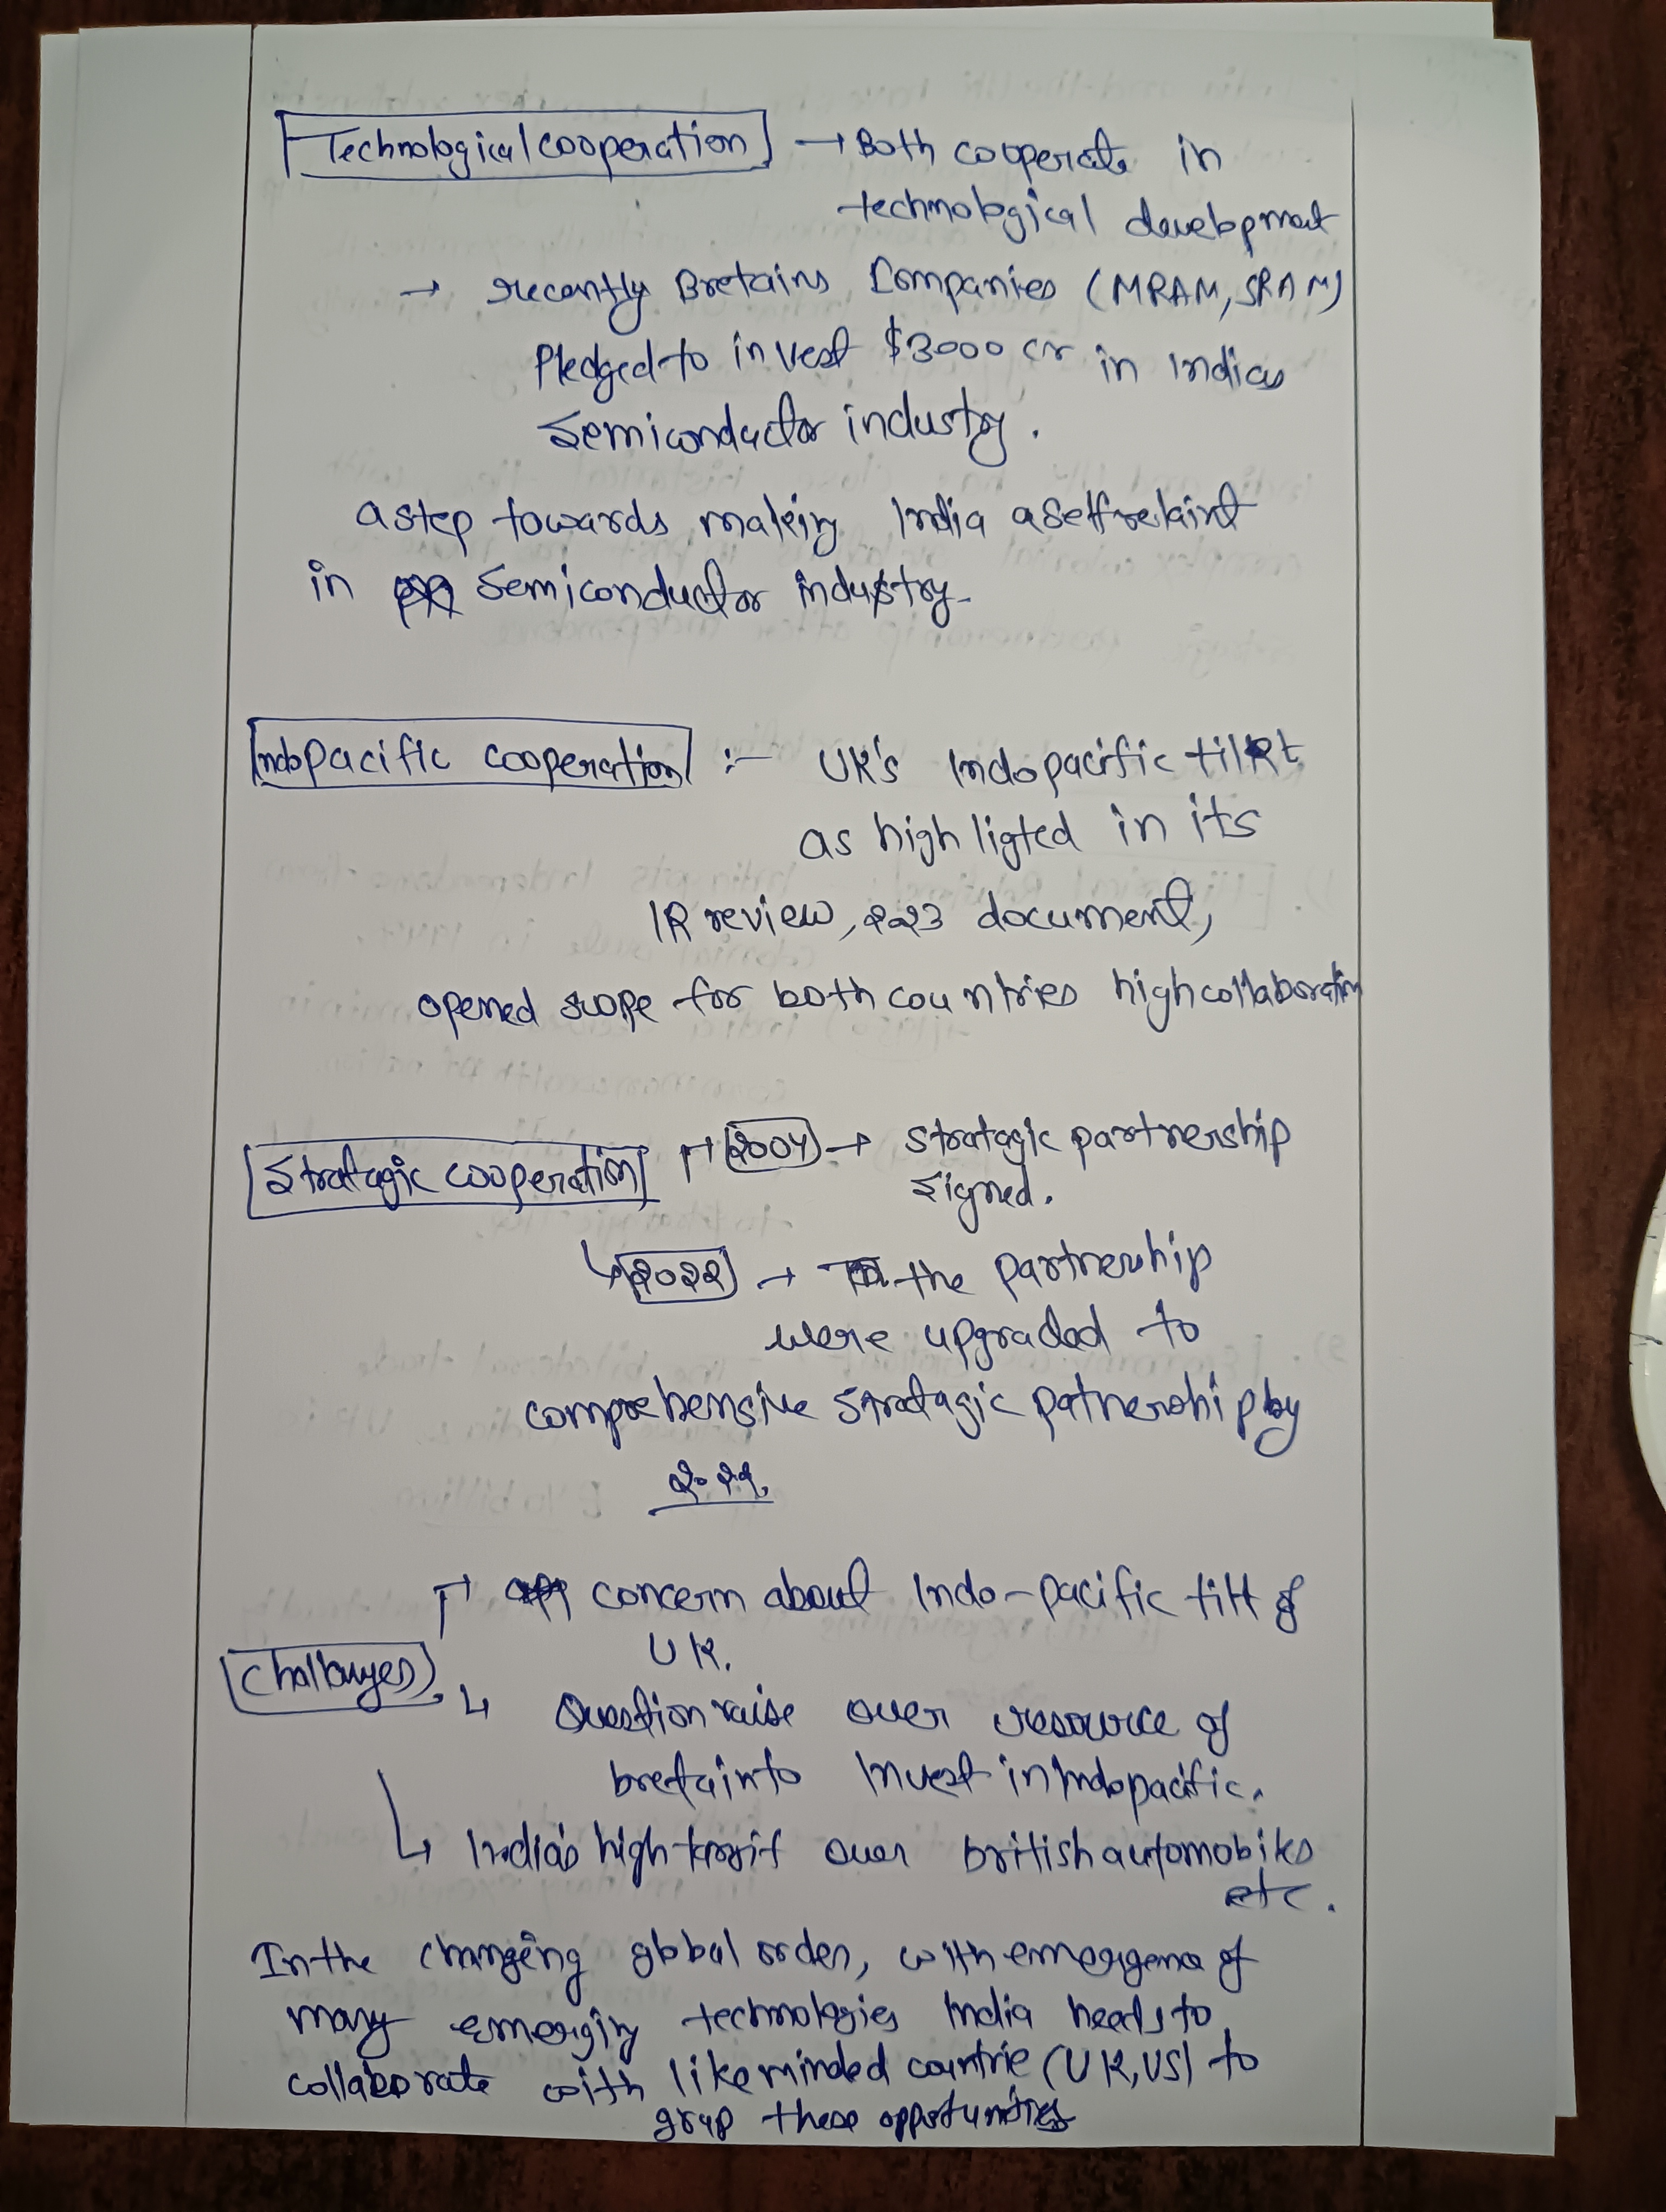 Technological cooperation → Both cooperate in
technological development
→ recently Bretains Companies (MRAM, SRAM)
Pledged to invest $3000 cr in Indias
Semiconductor industry.
a step towards making India a selfrelaint
in semiconductor industry.
Indopacific cooperation :- UK's Indopacific tilt
as high ligted in its
IR review, 2023 document,
opened scope for both countries high collaboration
Stratagic cooperation → 2004 → Stratagic partnership
signed.
↳ 2022 → the partnership
were upgraded to
comprehensive stratagic patnership by
→ concern about Indo-pacific tilt of
UK.
Challenges
↳ Question raise over resource of
bretain to Invest in Indopacific.
↳ India's high tarrif over british automobiles
etc.
In the changeing global order, with emergence of
many emerging technologies India needs to
collaborate with likeminded countrie (UK, US) to
grap these opportunities